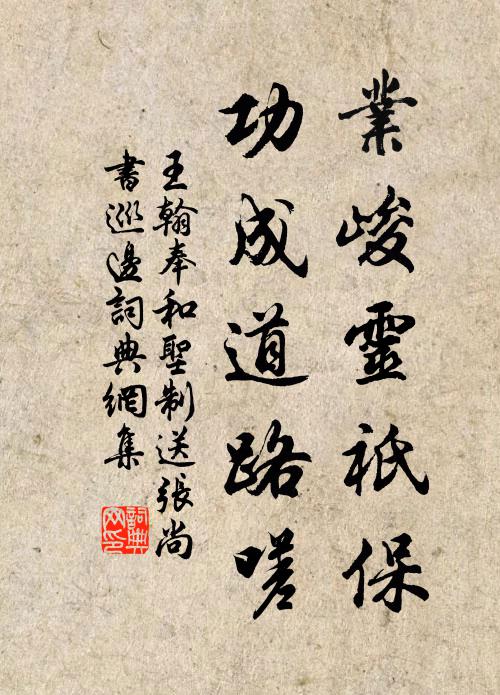 業峻靈祇保
功成道路嗟
王翰奉和聖制送張尚
書巡邊詞典網集
詞典网印